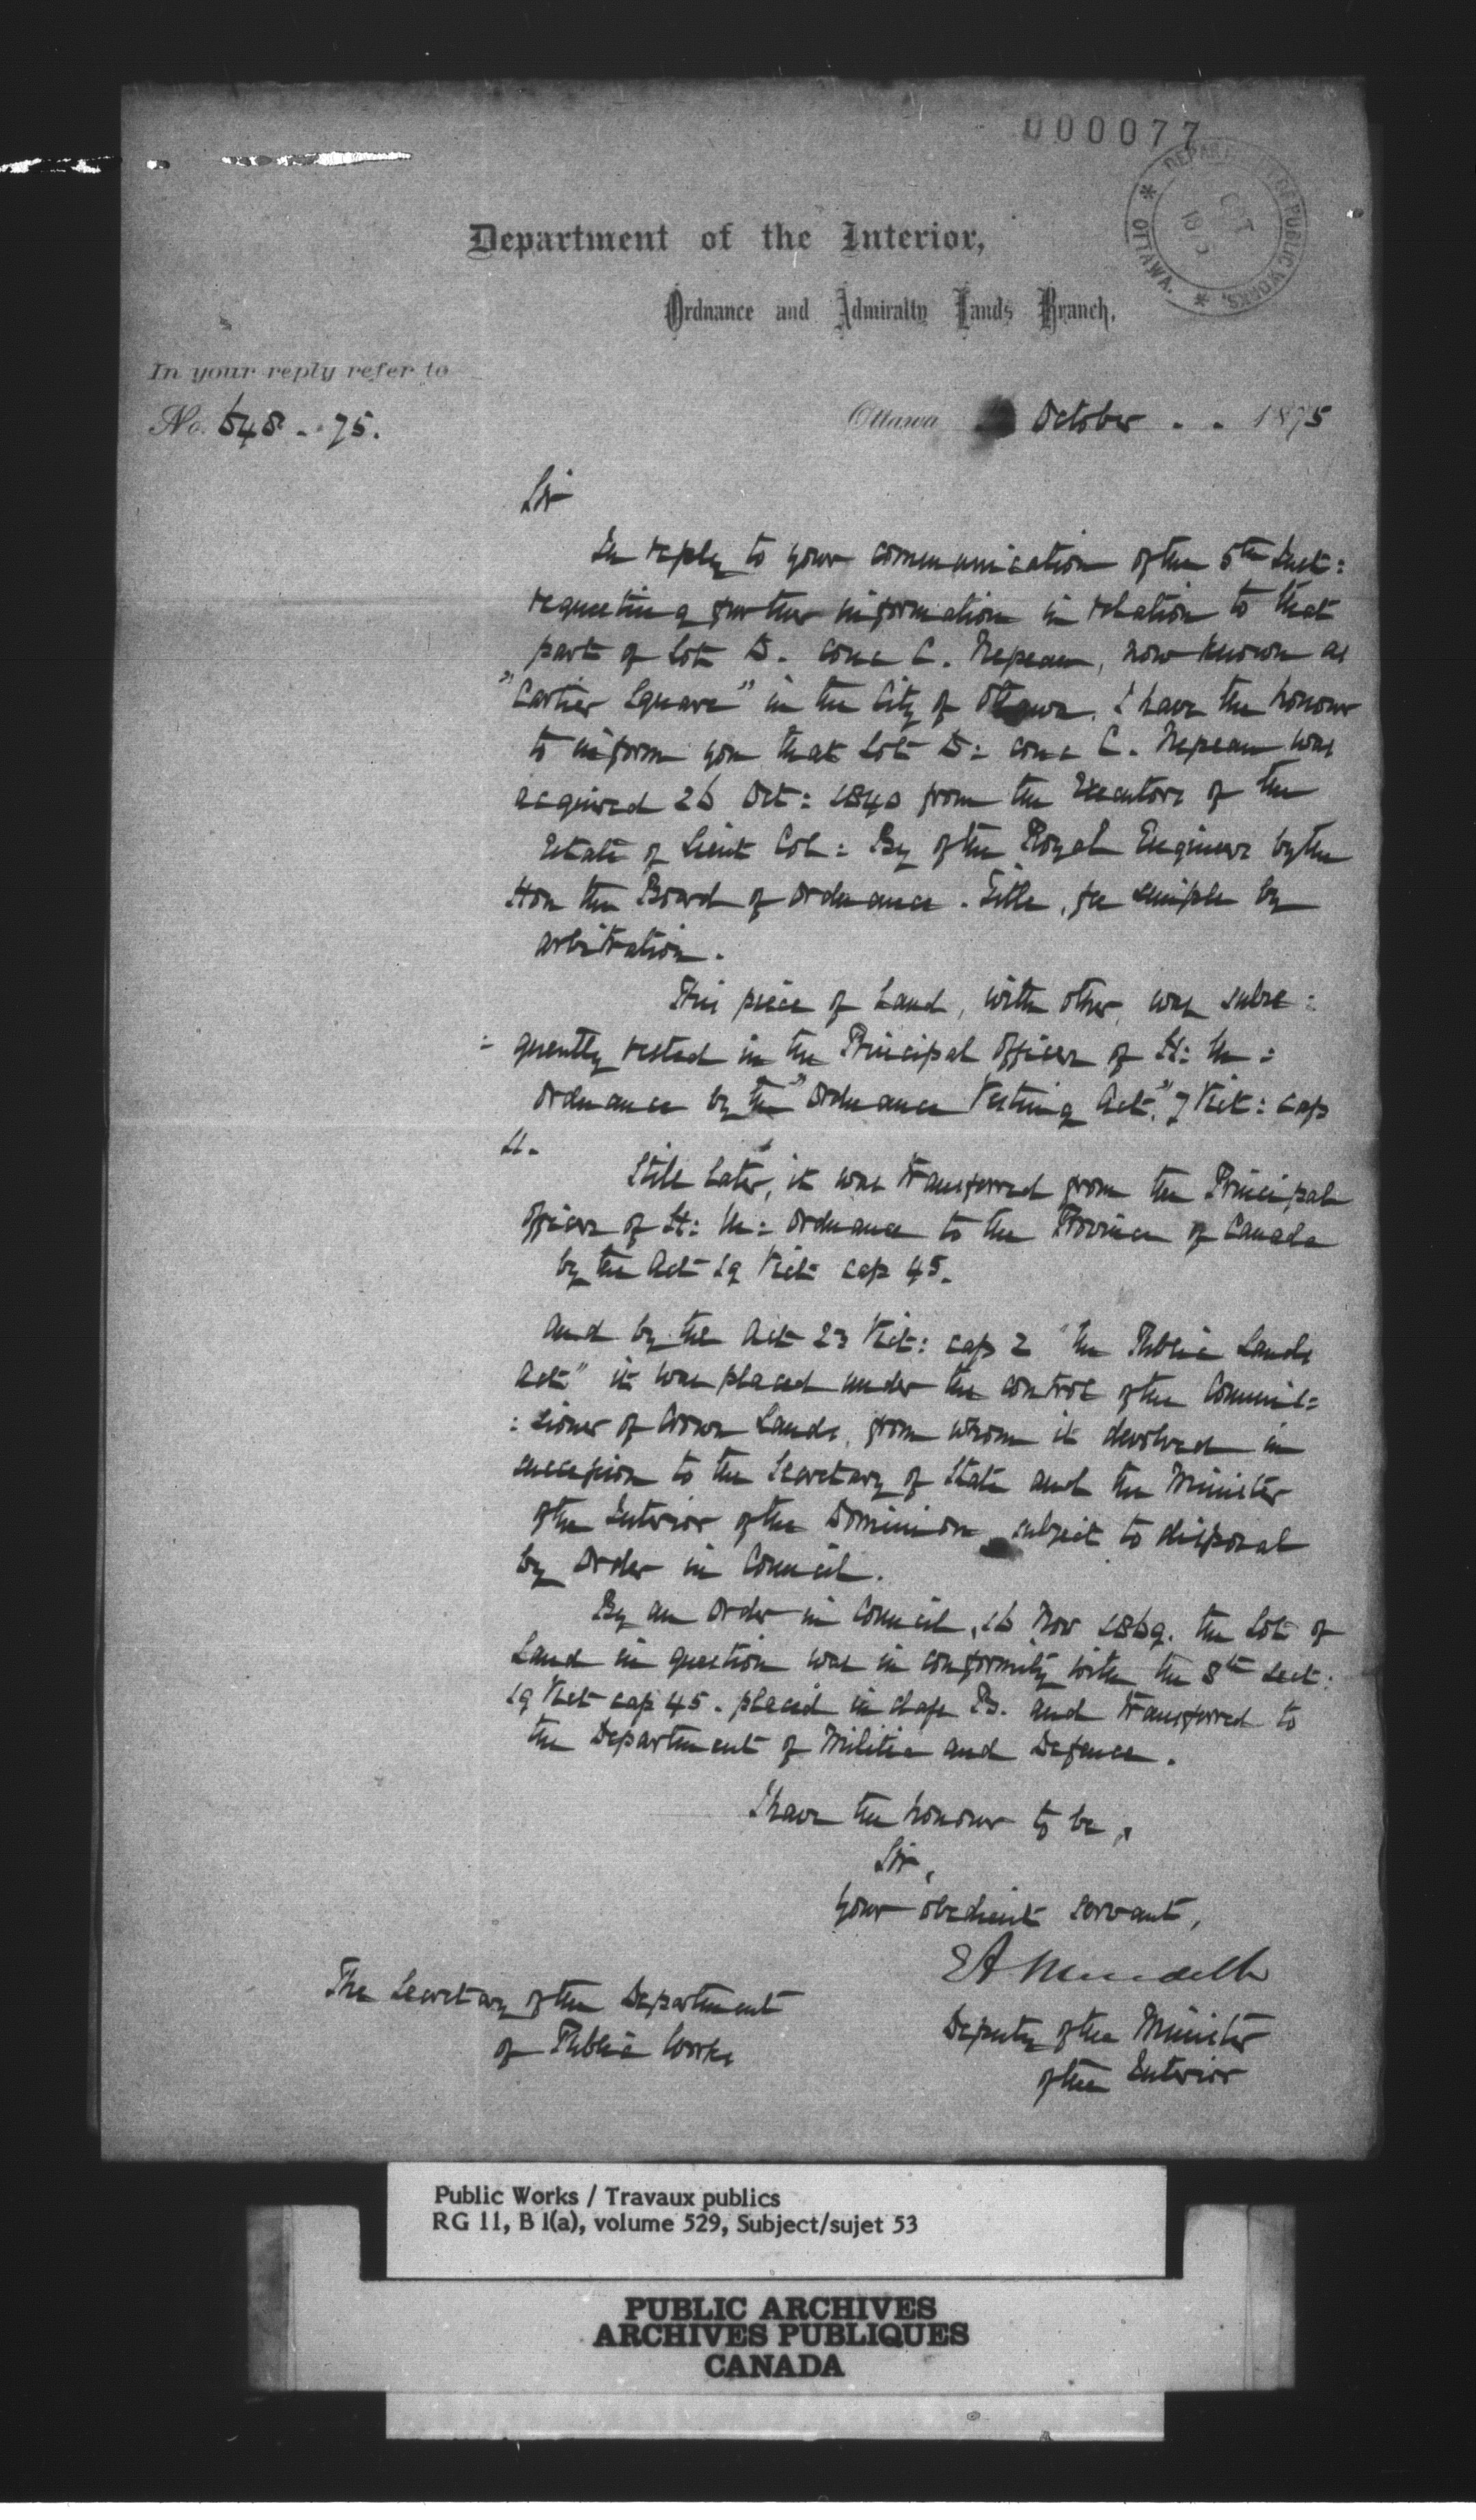 000077
DEPARTMENT OF PUBLIC WORKS, * OTTAWA. *
OCT
Department of the Interior,
Ordnance and Admiralty Lands Branch,
In your reply refer to
No. 548 - 75.
Ottawa October . . 1875
Sir
In reply to your communication of the 5th Inst:
requesting further information in relation to that
part of Lot D. Conc C. Nepean, now known as
"Cartier Square" in the City of Ottawa. I have the honour
to inform you that Lot D: conc C. Nepean was
acquired 26 Oct: 1840 from the Executors of the
Estate of Lieut Col: By of the Royal Engineers by the
Hon the Board of Ordnance. Title, fee simple by
arbitration.
This piece of Land, with other, was subse:
: quently vested in the Principal Officers of H: M:
Ordnance by the "Ordnance Vesting Act," 7 Vict: cap
11.
Still later, it was transferred from the Principal
Officers of H: M: Ordnance to the Province of Canada
by the Act 19 Vict: cap 45.
And by the Act 23 Vict: cap 2 "The Public Lands
Act" it was placed under the control of the Commis:
: sioner of Crown Lands, from whom it devolved in
succession to the Secretary of State and the Minister
of the Interior of the Dominion subject to disposal
by Order in Council.
By an Order in Council, 16 Nov 1869. the Lot of
Land in question was in conformity with the 8th sect:
19 Vict cap 45. placed in class B. and transferred to
the Department of Militia and Defence.
I have the honour to be,
Sir,
Your obedient servant,
The Secretary of the Department
of Public Works
Deputy of the Minister
of the Interior
Public Works / Travaux publics
RG 11, B 1(a), volume 529, Subject/sujet 53
PUBLIC ARCHIVES
ARCHIVES PUBLIQUES
CANADA